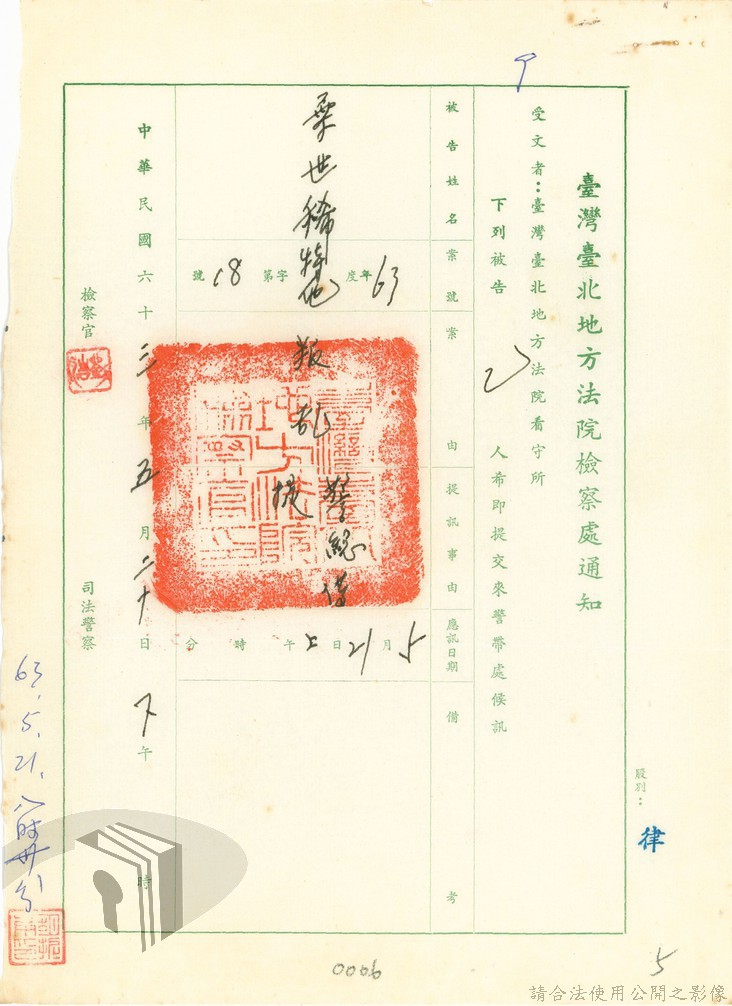 臺灣臺北地方法院檢察處通知
股別：律
受文者：臺灣臺北地方法院看守所
下列被告 人希即提交來警帶處候訊
被告姓名
案號
案由
提訊事由
應訊日期
備考
63年度 字第 18號
叛亂
警總借提
5月21日上午 時 分
中華民國六十三年五月二十日下午 時
檢察官
司法警察
63.5.21.八時卅分
0006
5
請合法使用公開之影像